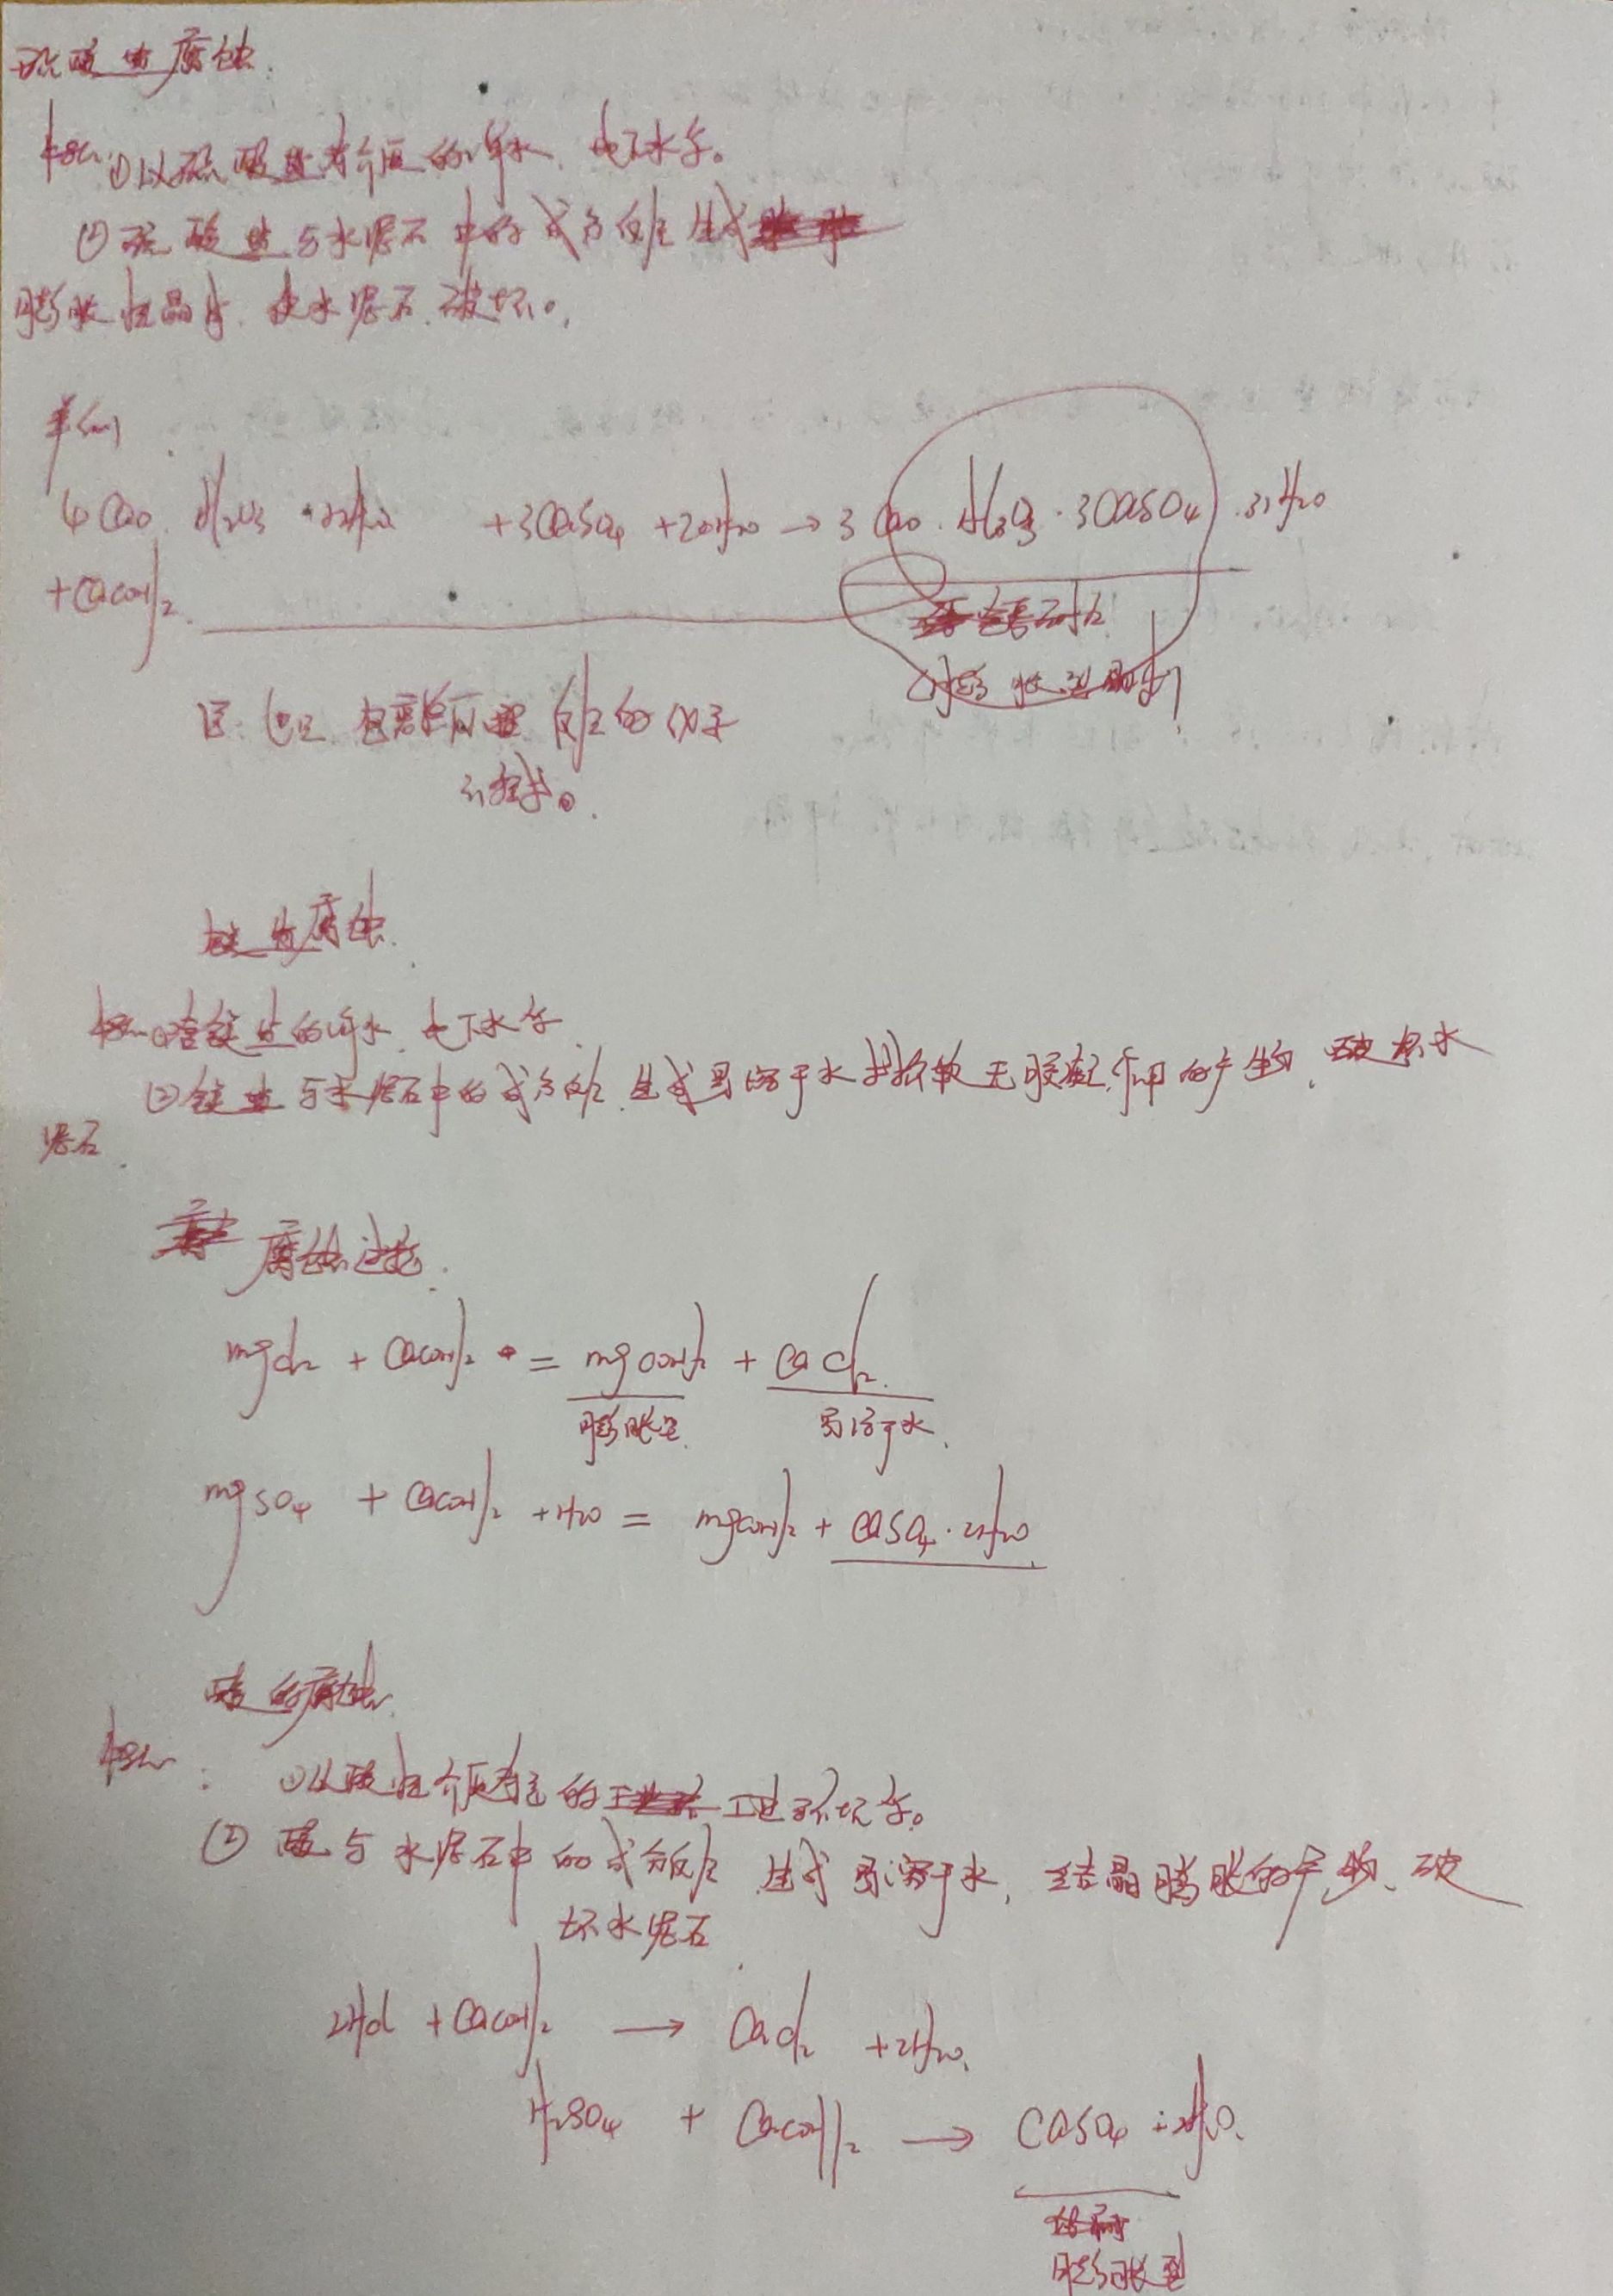 硫酸盐腐蚀.
①以硫酸盐为介质的海水、地下水等。
② 硫酸盐与水泥石中的成分反应生成
膨胀性晶体.使水泥石破坏。
4CaO·Al2O3·12H2O +3CaSO4 +20H2O → 3CaO·Al2O3·3CaSO4·31H2O
+Ca(OH)2
(膨胀型晶体)
反应的似乎
镁盐腐蚀.
①含镁盐的海水、地下水等
②镁盐与水泥石中的成分反应.生成易溶于水或松软无胶凝作用的产物、破坏水
泥石.
腐蚀过程.
MgCl2 + Ca(OH)2 = Mg(OH)2 + CaCl2.
膨胀型 易溶于水.
MgSO4 + Ca(OH)2 +H2O = Mg(OH)2 + CaSO4·2H2O.
酸的腐蚀.
: ①以酸性介质为主的 工业环境等。
② 酸与水泥石中的成分反应.生成易溶于水, 结晶膨胀的产物、破
坏水泥石.
2HCl + Ca(OH)2 → CaCl2 +2H2O.
H2SO4 + Ca(OH)2 → CaSO4·2H2O.
膨胀型